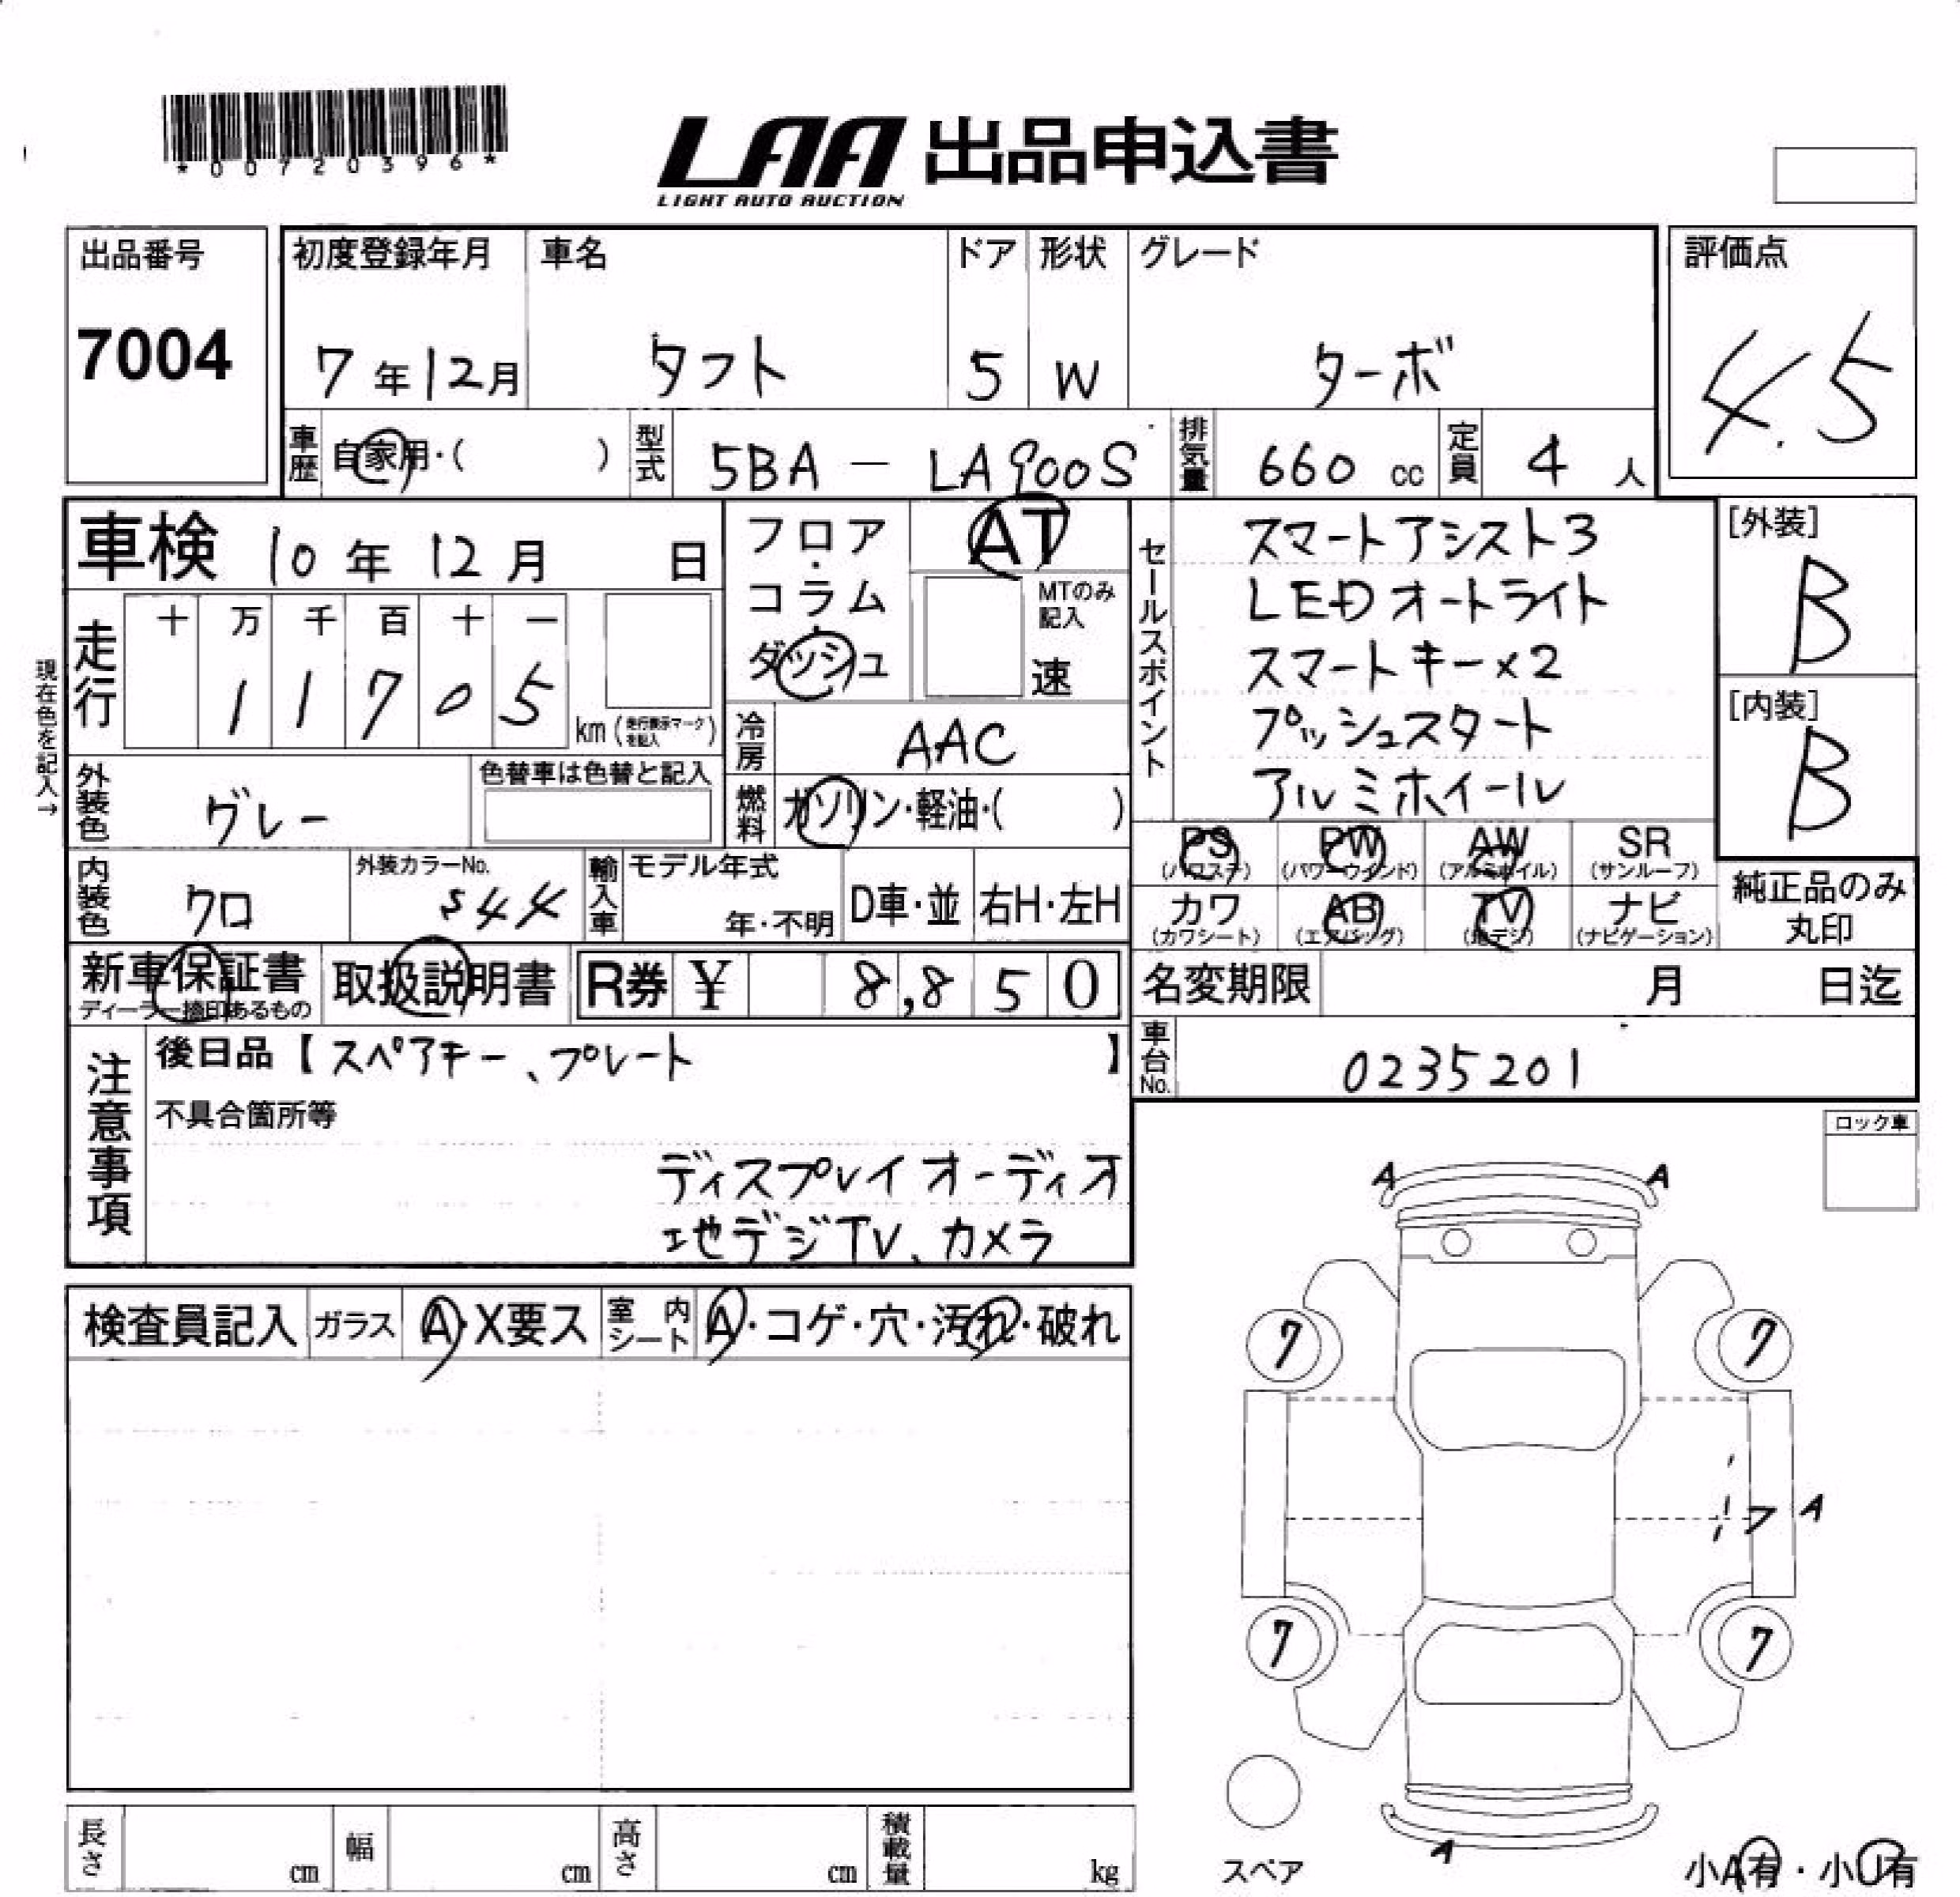 *00720396*
LAA 出品申込書
LIGHT AUTO AUCTION
出品番号
7004
初度登録年月
7年12月
車名
タフト
ドア
5
形状
W
グレード
ターボ
評価点
4.5
車歴 自家用・( )
型式 5BA - LA900S
排気量 660 cc
定員 4 人
車検 10年12月 日
フロア・コラム・ダッシュ
AT
MTのみ記入
速
セールスポイント
スマートアシスト3
LEDオートライト
スマートキー×2
プッシュスタート
アルミホイール
[外装]
B
[内装]
B
現在色を記入→
走行
十 万 千 百 十 一
1 1 7 0 5
km(走行表示マークを記入)
冷房 AAC
外装色 グレー
色替車は色替と記入
燃料 ガソリン・軽油・( )
内装色 クロ
外装カラーNo.
S44
輸入車
モデル年式
年・不明
D車・並
右H・左H
PS (パワステ)
PW (パワーウインド)
AW (アルミホイル)
SR (サンルーフ)
カワ (カワシート)
AB (エアバッグ)
TV (地デジ)
ナビ (ナビゲーション)
純正品のみ丸印
新車保証書
ディーラー捺印あるもの
取扱説明書
R券 ¥ 8,850
名変期限 月 日迄
車台No. 0235201
注意事項
後日品【スペアキー、プレート】
不具合箇所等
ディスプレイオーディオ
地デジTV、カメラ
ロック車
検査員記入
ガラス A・X要ス
室内シート A・コゲ・穴・汚れ・破れ
A A
7 7
ワ A
7 7
A
スペア
小A有・小U有
長さ cm
幅 cm
高さ cm
積載量 kg